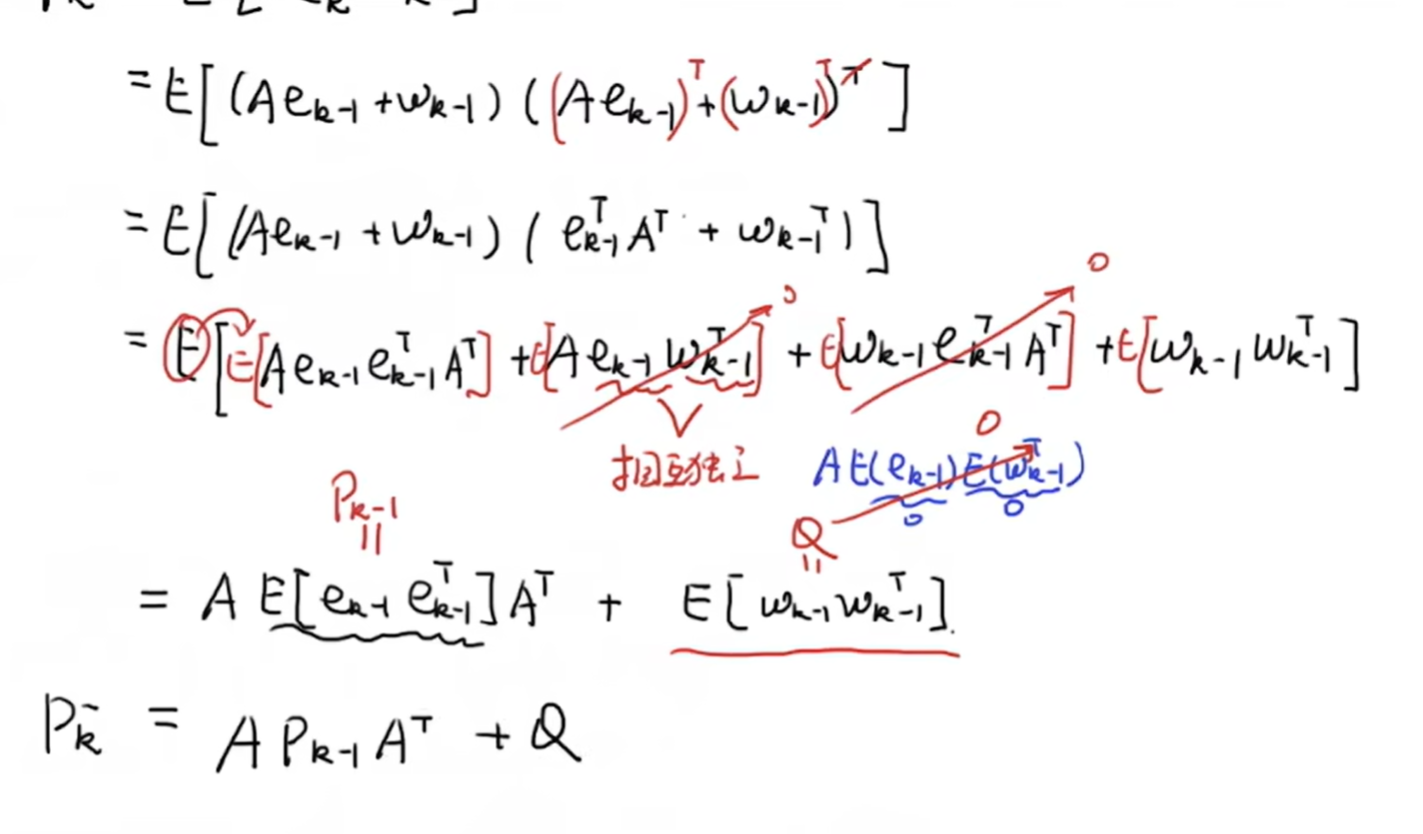 = E[(Ae_{k-1} + w_{k-1}) ((Ae_{k-1})^T + (w_{k-1})^T)^T]
= E[(Ae_{k-1} + w_{k-1}) (e_{k-1}^T A^T + w_{k-1}^T)]
0 0
= E[E[Ae_{k-1} e_{k-1}^T A^T] + E[Ae_{k-1} w_{k-1}^T] + E[w_{k-1} e_{k-1}^T A^T] + E[w_{k-1} w_{k-1}^T]]
0
相互独立 A E(e_{k-1}) E(w_{k-1}^T)
0 0
P_{k-1} Q
|| ||
= A E[e_{k-1} e_{k-1}^T] A^T + E[w_{k-1} w_{k-1}^T].
P_k^- = A P_{k-1} A^T + Q